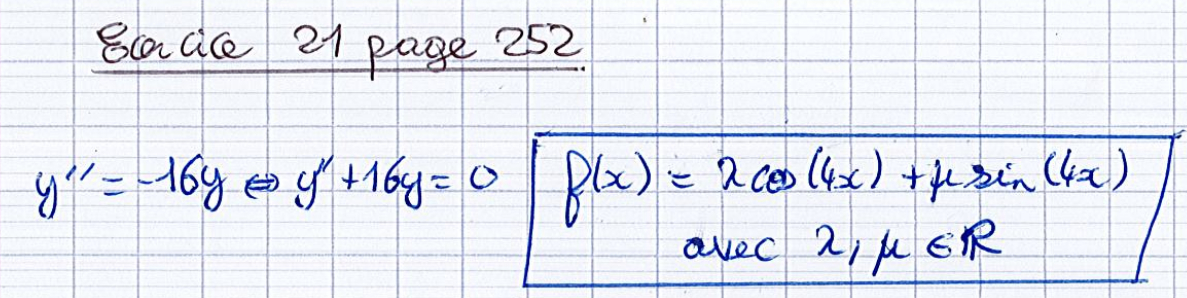 Exercice 21 page 252.
y'' = -16y ⇔ y'' + 16y = 0
f(x) = λ cos(4x) + μ sin(4x)
avec λ, μ ∈ ℝ